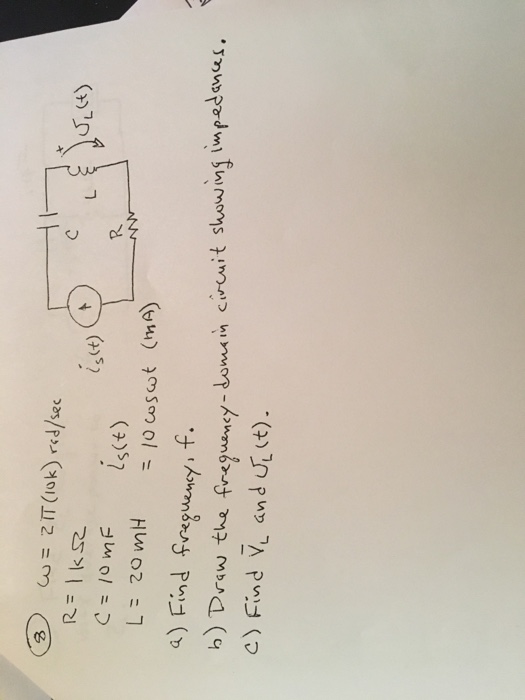 8 ω = 2π(10k) rad/sec
R = 1 kΩ
C = 10 mF
L = 20 mH
is(t)
= 10 cos ωt (mA)
is(t)
+
C
R
L
+
υL(t)
a) Find frequency, f.
b) Draw the frequency-domain circuit showing impedances.
c) Find V̄L and υL(t).